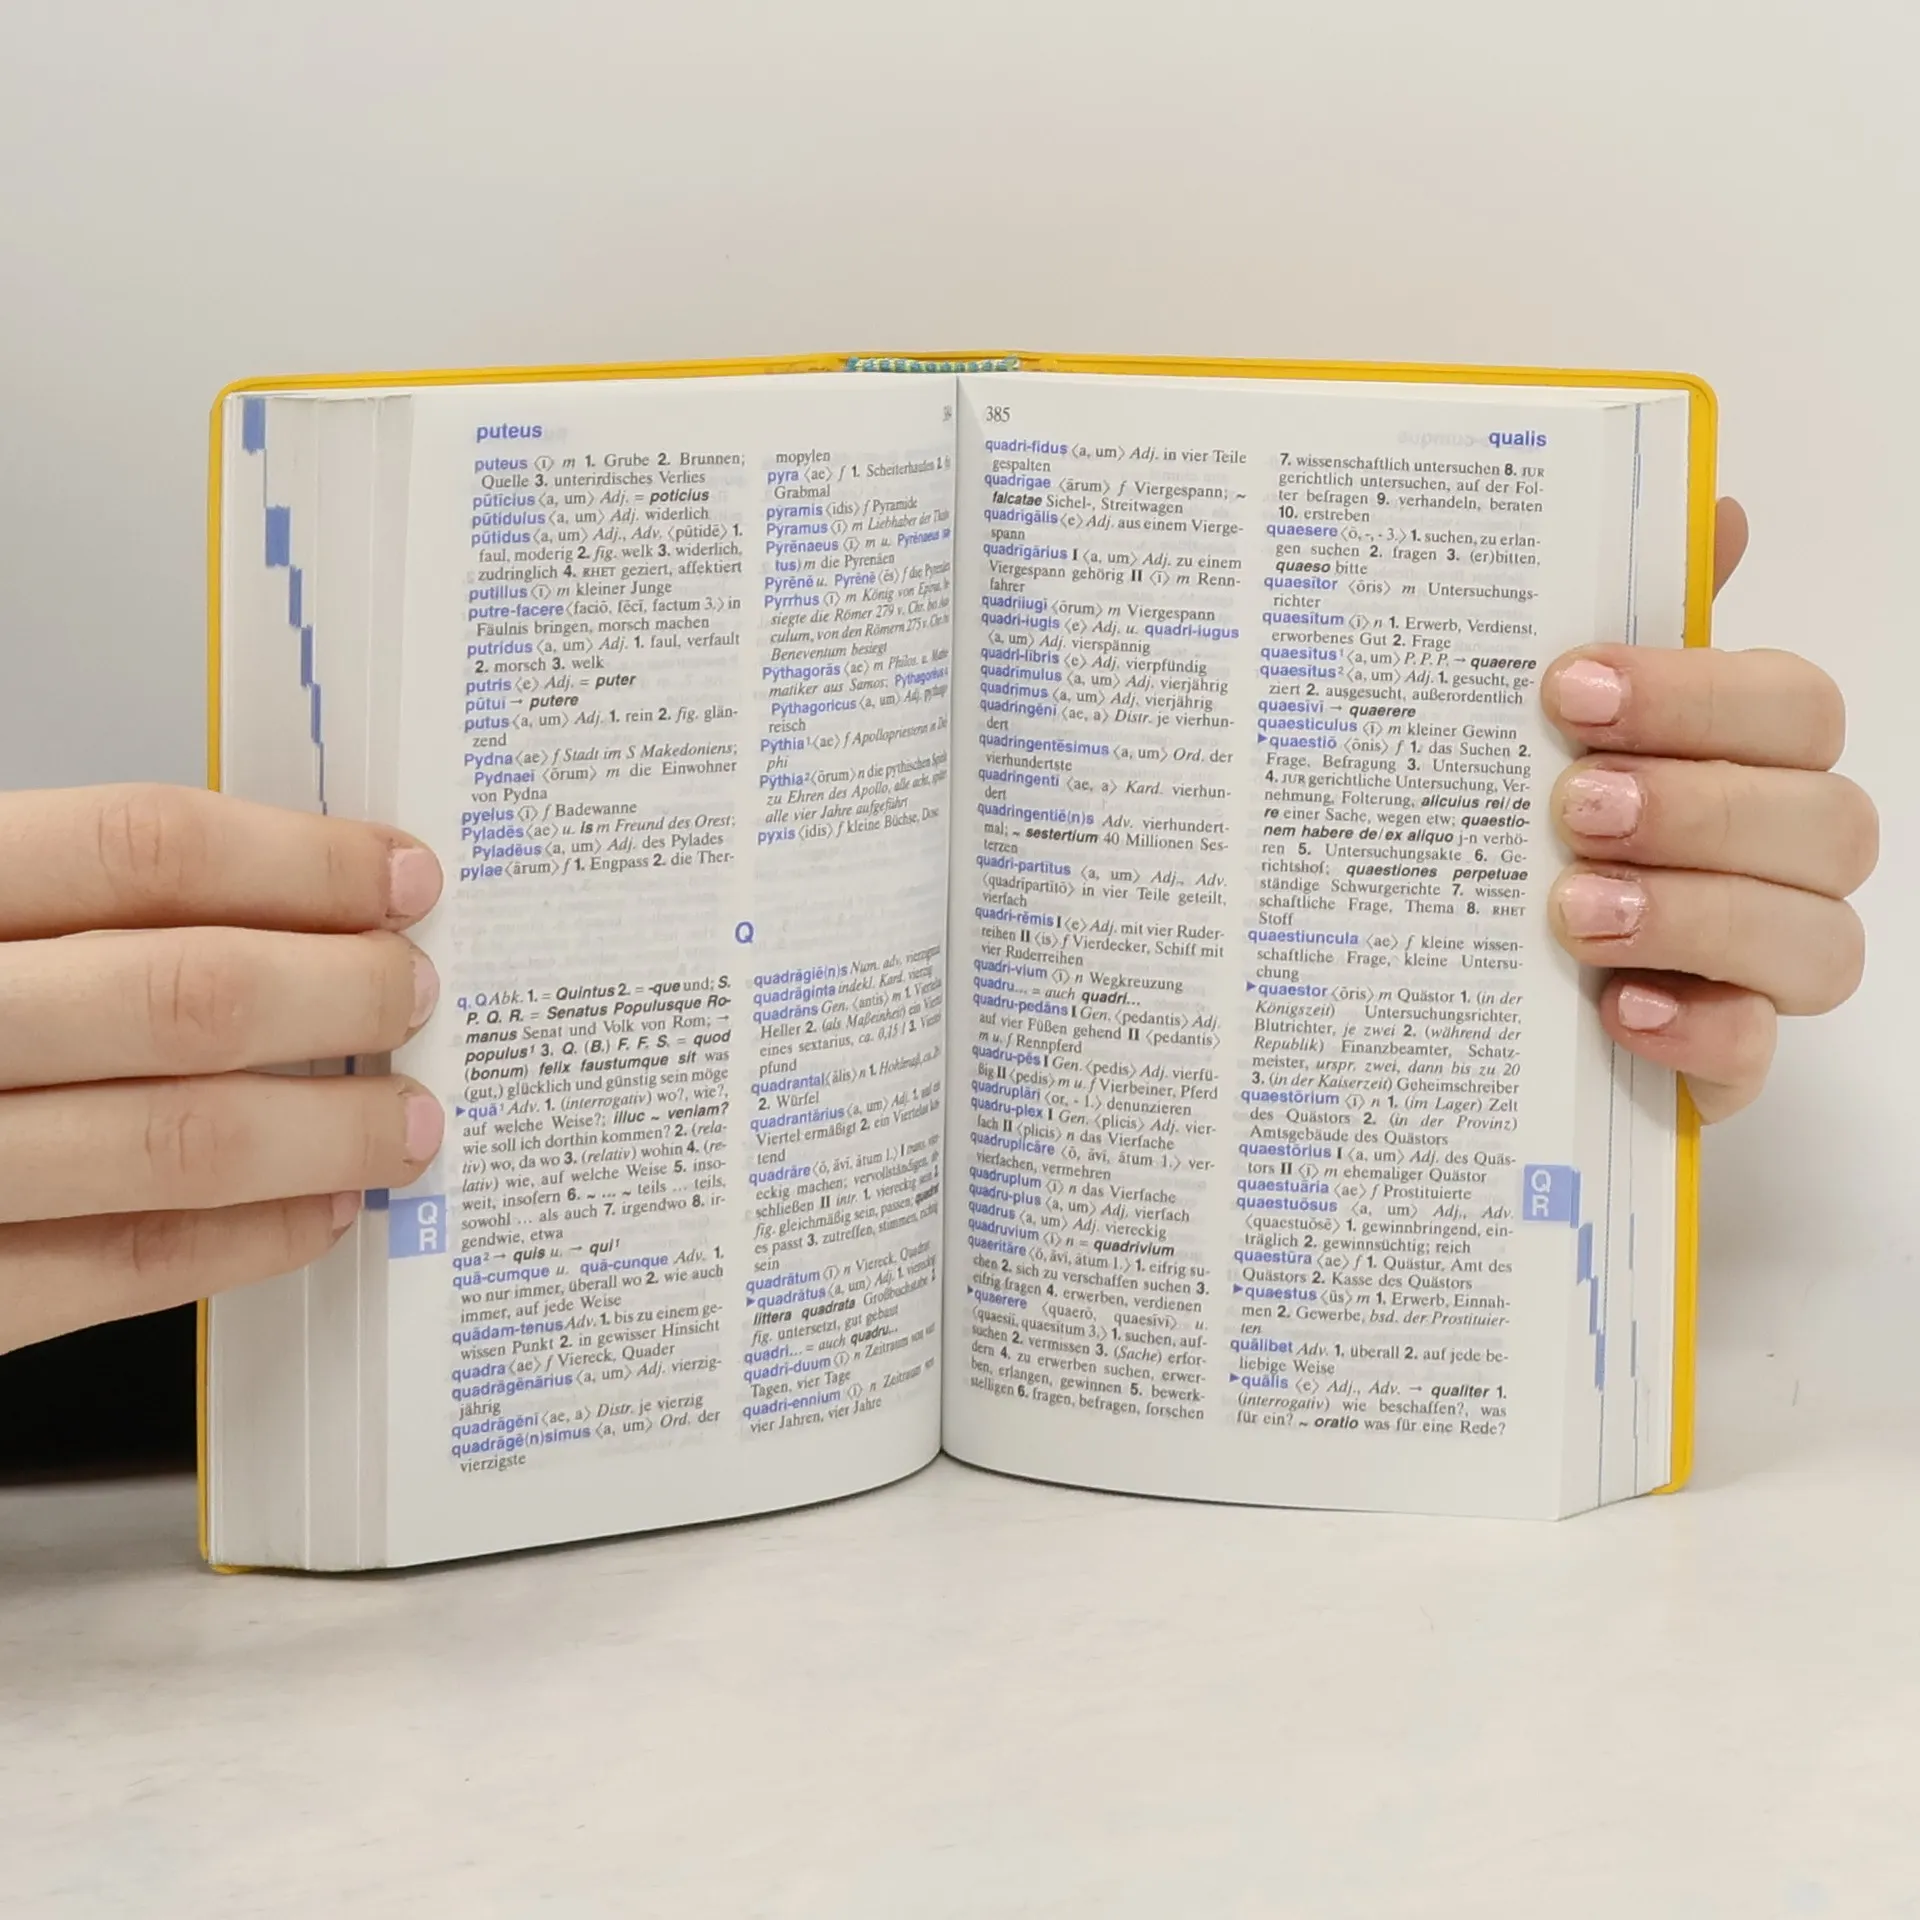 puteus
puteus ⟨ī⟩ m 1. Grube 2. Brunnen;
Quelle 3. unterirdisches Verlies
pūticius ⟨a, um⟩ Adj. = poticius
pūtidulus ⟨a, um⟩ Adj. widerlich
pūtidus ⟨a, um⟩ Adj., Adv. ⟨pūtidē⟩ 1.
faul, moderig 2. fig. welk 3. widerlich,
zudringlich 4. RHET geziert, affektiert
putillus ⟨ī⟩ m kleiner Junge
putre-facere ⟨faciō, fēcī, factum 3.⟩ in
Fäulnis bringen, morsch machen
putridus ⟨a, um⟩ Adj. 1. faul, verfault
2. morsch 3. welk
putris ⟨e⟩ Adj. = puter
pūtuī → putere
putus ⟨a, um⟩ Adj. 1. rein 2. fig. glän-
zend
Pydna ⟨ae⟩ f Stadt im S Makedoniens;
Pydnaeī ⟨ōrum⟩ m die Einwohner
von Pydna
pyelus ⟨ī⟩ f Badewanne
Pyladēs ⟨ae⟩ u. is m Freund des Orest;
Pyladēus ⟨a, um⟩ Adj. des Pylades
pylae ⟨ārum⟩ f 1. Engpass 2. die Ther-
mopylen
pyra ⟨ae⟩ f 1. Scheiterhaufen 2.
Grabmal
pȳramis ⟨idis⟩ f Pyramide
Pȳramus ⟨ī⟩ m Liebhaber der
Pȳrēnaeus ⟨ī⟩ m u. Pȳrēnaeus
tus) m die Pyrenäen
Pȳrēnē u. Pȳrēnē ⟨ēs⟩ f die
Pyrrhus ⟨ī⟩ m König von
siegte die Römer 279 v. Chr. bei
culum, von den Römern 275 v. Chr.
Beneventum besiegt
Pȳthagorās ⟨ae⟩ m Philos. u. Mathe-
matiker aus Samos;
Pȳthagoricus ⟨a, um⟩ Adj.
reisch
Pȳthia¹ ⟨ae⟩ f Apollopriesterin in Del-
phi
Pȳthia² ⟨ōrum⟩ n die pythischen Spiele
zu Ehren des Apollo, alle acht, später
alle vier Jahre aufgeführt
pyxis ⟨idis⟩ f kleine Büchse, Dose
Q
q. Q Abk. 1. = Quintus 2. = -que und; S.
P. Q. R. = Senatus Populusque Ro-
manus Senat und Volk von Rom; →
populus¹ 3. Q. (B.) F. F. S. = quod
(bonum) felix faustumque sit was
(gut,) glücklich und günstig sein möge
▶quā¹ Adv. 1. (interrogativ) wo?, wie?,
auf welche Weise?; illuc ~ veniam?
wie soll ich dorthin kommen? 2. (rela-
tiv) wo, da wo 3. (relativ) wohin 4. (re-
lativ) wie, auf welche Weise 5. inso-
weit, insofern 6. ~ ... ~ teils ... teils,
sowohl ... als auch 7. irgendwo 8. ir-
gendwie, etwa
qua² → quis u. → qui¹
quā-cumque u. quā-cunque Adv. 1.
wo nur immer, überall wo 2. wie auch
immer, auf jede Weise
quādam-tenus Adv. 1. bis zu einem ge-
wissen Punkt 2. in gewisser Hinsicht
quadra ⟨ae⟩ f Viereck, Quader
quadrāgēnārius ⟨a, um⟩ Adj. vierzig-
jährig
quadrāgēnī ⟨ae, a⟩ Distr. je vierzig
quadrāgē(n)simus ⟨a, um⟩ Ord. der
vierzigste
quadrāgiē(n)s Num. adv. vierzigmal
quadrāgintā indekl. Kard. vierzig
quadrāns Gen. ⟨antis⟩ m 1. Viertel
Heller 2. (als Maßeinheit) ein Viertel
eines sextarius, ca. 0,15 l 3. Viertel-
pfund
quadrantal ⟨ālis⟩ n 1. Hohlmaß, ca.
2. Würfel
quadrantārius ⟨a, um⟩ Adj. 1. auf ein
Viertel ermäßigt 2. ein Viertelas kos-
tend
quadrāre ⟨ō, āvī, ātum 1.⟩ I trans. vier-
eckig machen; vervollständigen, ab-
schließen II intr. 1. viereckig sein 2.
fig. gleichmäßig sein, passen; quadrat
es passt 3. zutreffen, stimmen, richtig
sein
quadrātum ⟨ī⟩ n Viereck, Quadrat
▶quadrātus ⟨a, um⟩ Adj. 1. viereckig
littera quadrata Großbuchstabe 2.
fig. untersetzt, gut gebaut
quadri... = auch quadru...
quadri-duum ⟨ī⟩ n Zeitraum von vier
Tagen, vier Tage
quadri-ennium ⟨ī⟩ n Zeitraum von
vier Jahren, vier Jahre
Q
R
385
qualis
quadri-fidus ⟨a, um⟩ Adj. in vier Teile
gespalten
quadrīgae ⟨ārum⟩ f Viergespann; ~
falcatae Sichel-, Streitwagen
quadrīgālis ⟨e⟩ Adj. aus einem Vierge-
spann
quadrīgārius I ⟨a, um⟩ Adj. zu einem
Viergespann gehörig II ⟨ī⟩ m Renn-
fahrer
quadriiugī ⟨ōrum⟩ m Viergespann
quadri-iugis ⟨e⟩ Adj. u. quadri-iugus
⟨a, um⟩ Adj. vierspännig
quadri-lībris ⟨e⟩ Adj. vierpfündig
quadrīmulus ⟨a, um⟩ Adj. vierjährig
quadrīmus ⟨a, um⟩ Adj. vierjährig
quadringēnī ⟨ae, a⟩ Distr. je vierhun-
dert
quadringentēsimus ⟨a, um⟩ Ord. der
vierhundertste
quadringentī ⟨ae, a⟩ Kard. vierhun-
dert
quadringentiē(n)s Adv. vierhundert-
mal; ~ sestertium 40 Millionen Ses-
terzen
quadri-partītus ⟨a, um⟩ Adj., Adv.
⟨quadripartītō⟩ in vier Teile geteilt,
vierfach
quadri-rēmis I ⟨e⟩ Adj. mit vier Ruder-
reihen II ⟨is⟩ f Vierdecker, Schiff mit
vier Ruderreihen
quadri-vium ⟨ī⟩ n Wegkreuzung
quadru... = auch quadri...
quadru-pedāns I Gen. ⟨pedantis⟩ Adj.
auf vier Füßen gehend II ⟨pedantis⟩
m u. f Rennpferd
quadru-pēs I Gen. ⟨pedis⟩ Adj. vierfü-
ßig II ⟨pedis⟩ m u. f Vierbeiner, Pferd
quadruplārī ⟨or, - 1.⟩ denunzieren
quadru-plex I Gen. ⟨plicis⟩ Adj. vier-
fach II ⟨plicis⟩ n das Vierfache
quadruplicāre ⟨ō, āvī, ātum 1.⟩ ver-
vierfachen, vermehren
quadruplum ⟨ī⟩ n das Vierfache
quadru-plus ⟨a, um⟩ Adj. vierfach
quadrus ⟨a, um⟩ Adj. viereckig
quadruvium ⟨ī⟩ n = quadrivium
quaeritāre ⟨ō, āvī, ātum 1.⟩ 1. eifrig su-
chen 2. sich zu verschaffen suchen 3.
eifrig fragen 4. erwerben, verdienen
▶quaerere ⟨quaerō, quaesīvī⟩ u.
⟨quaesiī, quaesītum 3.⟩ 1. suchen, auf-
suchen 2. vermissen 3. (Sache) erfor-
dern 4. zu erwerben suchen, erwer-
ben, erlangen, gewinnen 5. bewerk-
stelligen 6. fragen, befragen, forschen
7. wissenschaftlich untersuchen 8. JUR
gerichtlich untersuchen, auf der Fol-
ter befragen 9. verhandeln, beraten
10. erstreben
quaesere ⟨ō, -, - 3.⟩ 1. suchen, zu erlan-
gen suchen 2. fragen 3. (er)bitten,
quaeso bitte
quaesītor ⟨ōris⟩ m Untersuchungs-
richter
quaesītum ⟨ī⟩ n 1. Erwerb, Verdienst,
erworbenes Gut 2. Frage
quaesītus¹ ⟨a, um⟩ P. P. P. → quaerere
quaesītus² ⟨a, um⟩ Adj. 1. gesucht, ge-
ziert 2. ausgesucht, außerordentlich
quaesīvī → quaerere
quaesticulus ⟨ī⟩ m kleiner Gewinn
▶quaestiō ⟨ōnis⟩ f 1. das Suchen 2.
Frage, Befragung 3. Untersuchung
4. JUR gerichtliche Untersuchung, Ver-
nehmung, Folterung, alicuius rei/de
re einer Sache, wegen etw; quaestio-
nem habere de/ex aliquo j-n verhö-
ren 5. Untersuchungsakte 6. Ge-
richtshof; quaestiones perpetuae
ständige Schwurgerichte 7. wissen-
schaftliche Frage, Thema 8. RHET
Stoff
quaestiuncula ⟨ae⟩ f kleine wissen-
schaftliche Frage, kleine Untersu-
chung
▶quaestor ⟨ōris⟩ m Quästor 1. (in der
Königszeit) Untersuchungsrichter,
Blutrichter, je zwei 2. (während der
Republik) Finanzbeamter, Schatz-
meister, urspr. zwei, dann bis zu 20
3. (in der Kaiserzeit) Geheimschreiber
quaestōrium ⟨ī⟩ n 1. (im Lager) Zelt
des Quästors 2. (in der Provinz)
Amtsgebäude des Quästors
quaestōrius I ⟨a, um⟩ Adj. des Quäs-
tors II ⟨ī⟩ m ehemaliger Quästor
quaestuāria ⟨ae⟩ f Prostituierte
quaestuōsus ⟨a, um⟩ Adj., Adv.
⟨quaestuōsē⟩ 1. gewinnbringend, ein-
träglich 2. gewinnsüchtig; reich
quaestūra ⟨ae⟩ f 1. Quästur, Amt des
Quästors 2. Kasse des Quästors
▶quaestus ⟨ūs⟩ m 1. Erwerb, Einnah-
men 2. Gewerbe, bsd. der Prostituier-
ten
quālibet Adv. 1. überall 2. auf jede be-
liebige Weise
▶quālis ⟨e⟩ Adj., Adv. → qualiter 1.
(interrogativ) wie beschaffen?, was
für ein? ~ oratio was für eine Rede?
Q
R